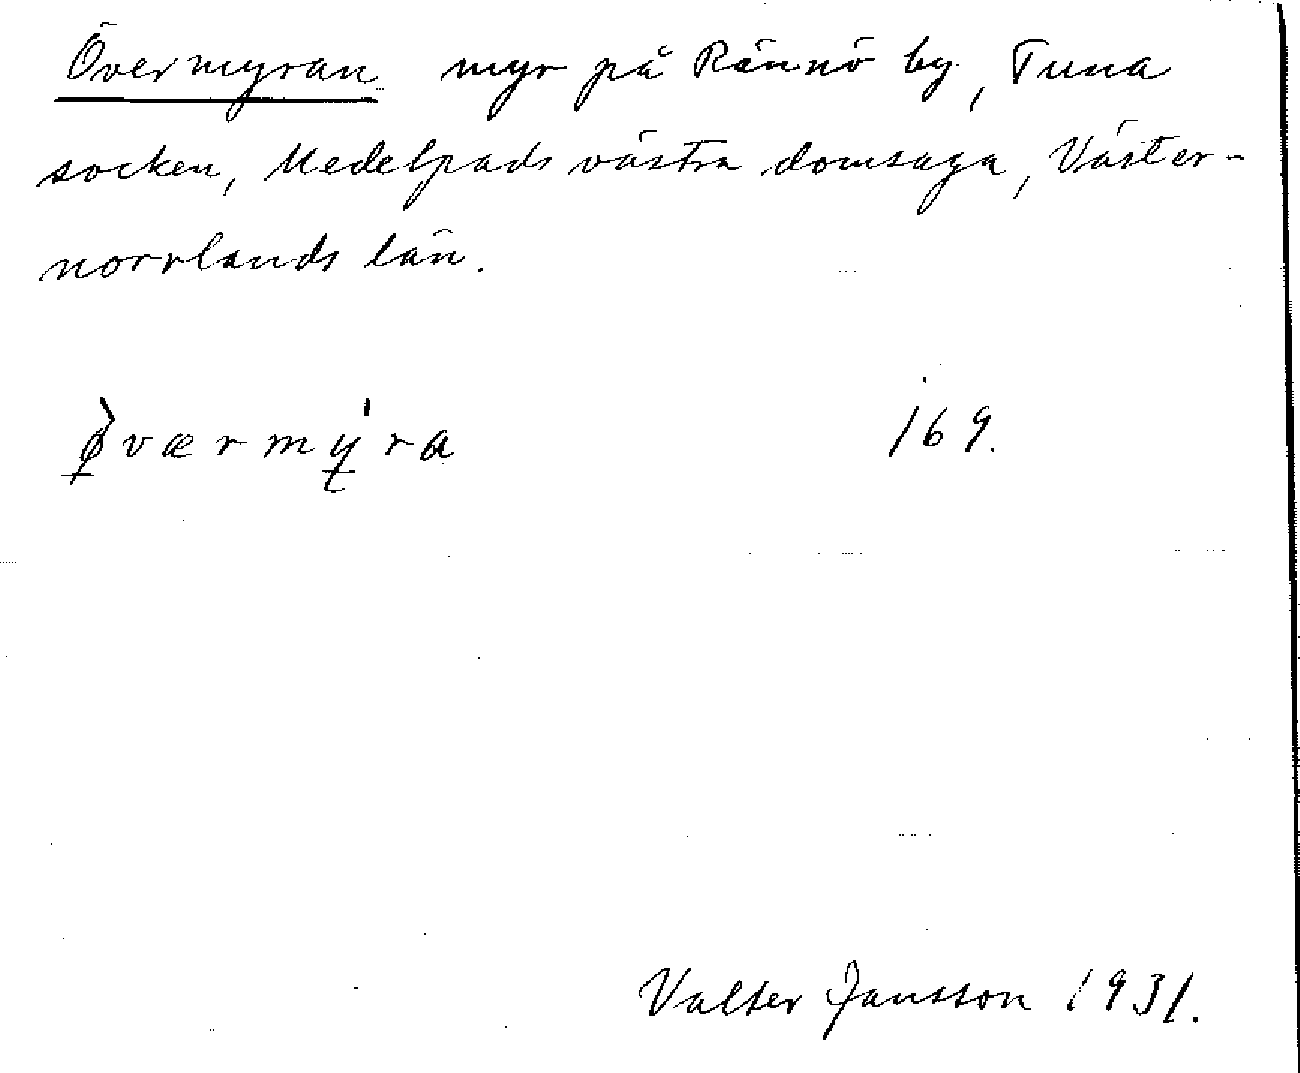 Övermyran myr på Rännö by, Tuna
socken, Medelpads västra domsaga, Väster-
norrlands län.
ø̀værmýra 169.
Valter Jansson 1931.